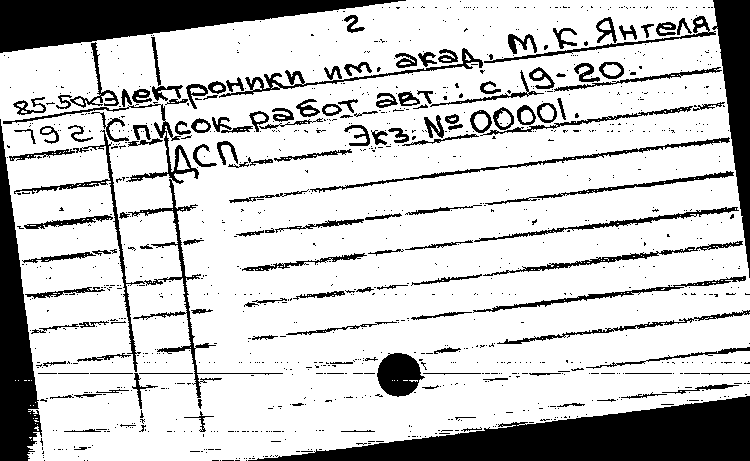 2
85-50к электроники им. акад. М.К. Янгеля.
792 Список работ авт.: с. 19-20.
ДСП. Экз. № 00001.